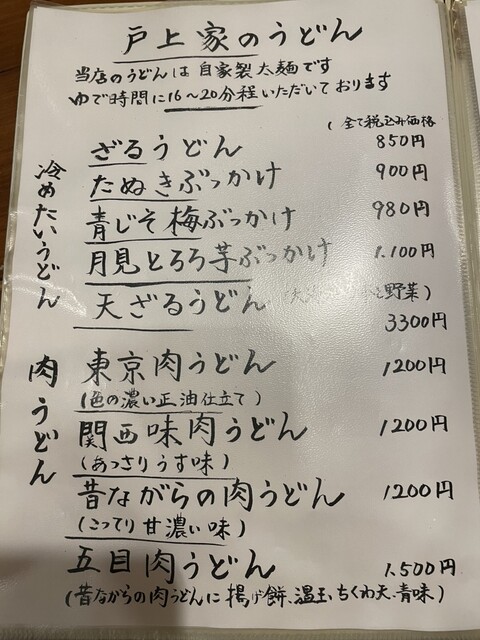 戸上家のうどん
当店のうどんは自家製太麺です
ゆで時間に16～20分程いただいております
(全て税込み価格
冷めたいうどん
ざるうどん 850円
たぬきぶっかけ 900円
青じそ梅ぶっかけ 980円
月見とろろ芋ぶっかけ 1.100円
天ざるうどん 野菜)
3300円
肉うどん
東京肉うどん 1200円
(色の濃い正油仕立て)
関西味肉うどん 1200円
(あっさりうす味)
昔ながらの肉うどん 1200円
(こってり甘濃い味)
五目肉うどん 1.500円
(昔ながらの肉うどんに揚げ餅、温玉、ちくわ天、青味)